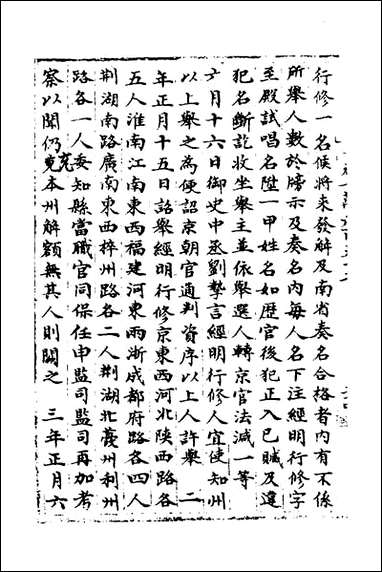 行修一名候将来發解及南省奏名合格者内有不係
所舉人數於牓示及奏名内每人名下注經明行修字
至殿試唱名陞一甲姓名如歷官後犯正入已贓及違
犯名斷訖收坐舉主並依舉選人轉京官法減一等
六月十六日御史中丞劉摯言經明行修人宜使知州
以上舉之為便詔京朝官通判資序以上人許舉 二
年正月十五日詔舉經明行修京東西河北陜西路各
五人淮南江南東西福建河東兩浙成都府路各四人
荆湖南路廣南東西梓州路各二人荆湖北夔州利州
路各一人委知縣當職官同保任申監司監司再加考
察以聞仍充本州解額無其人則闕之 三年正月六